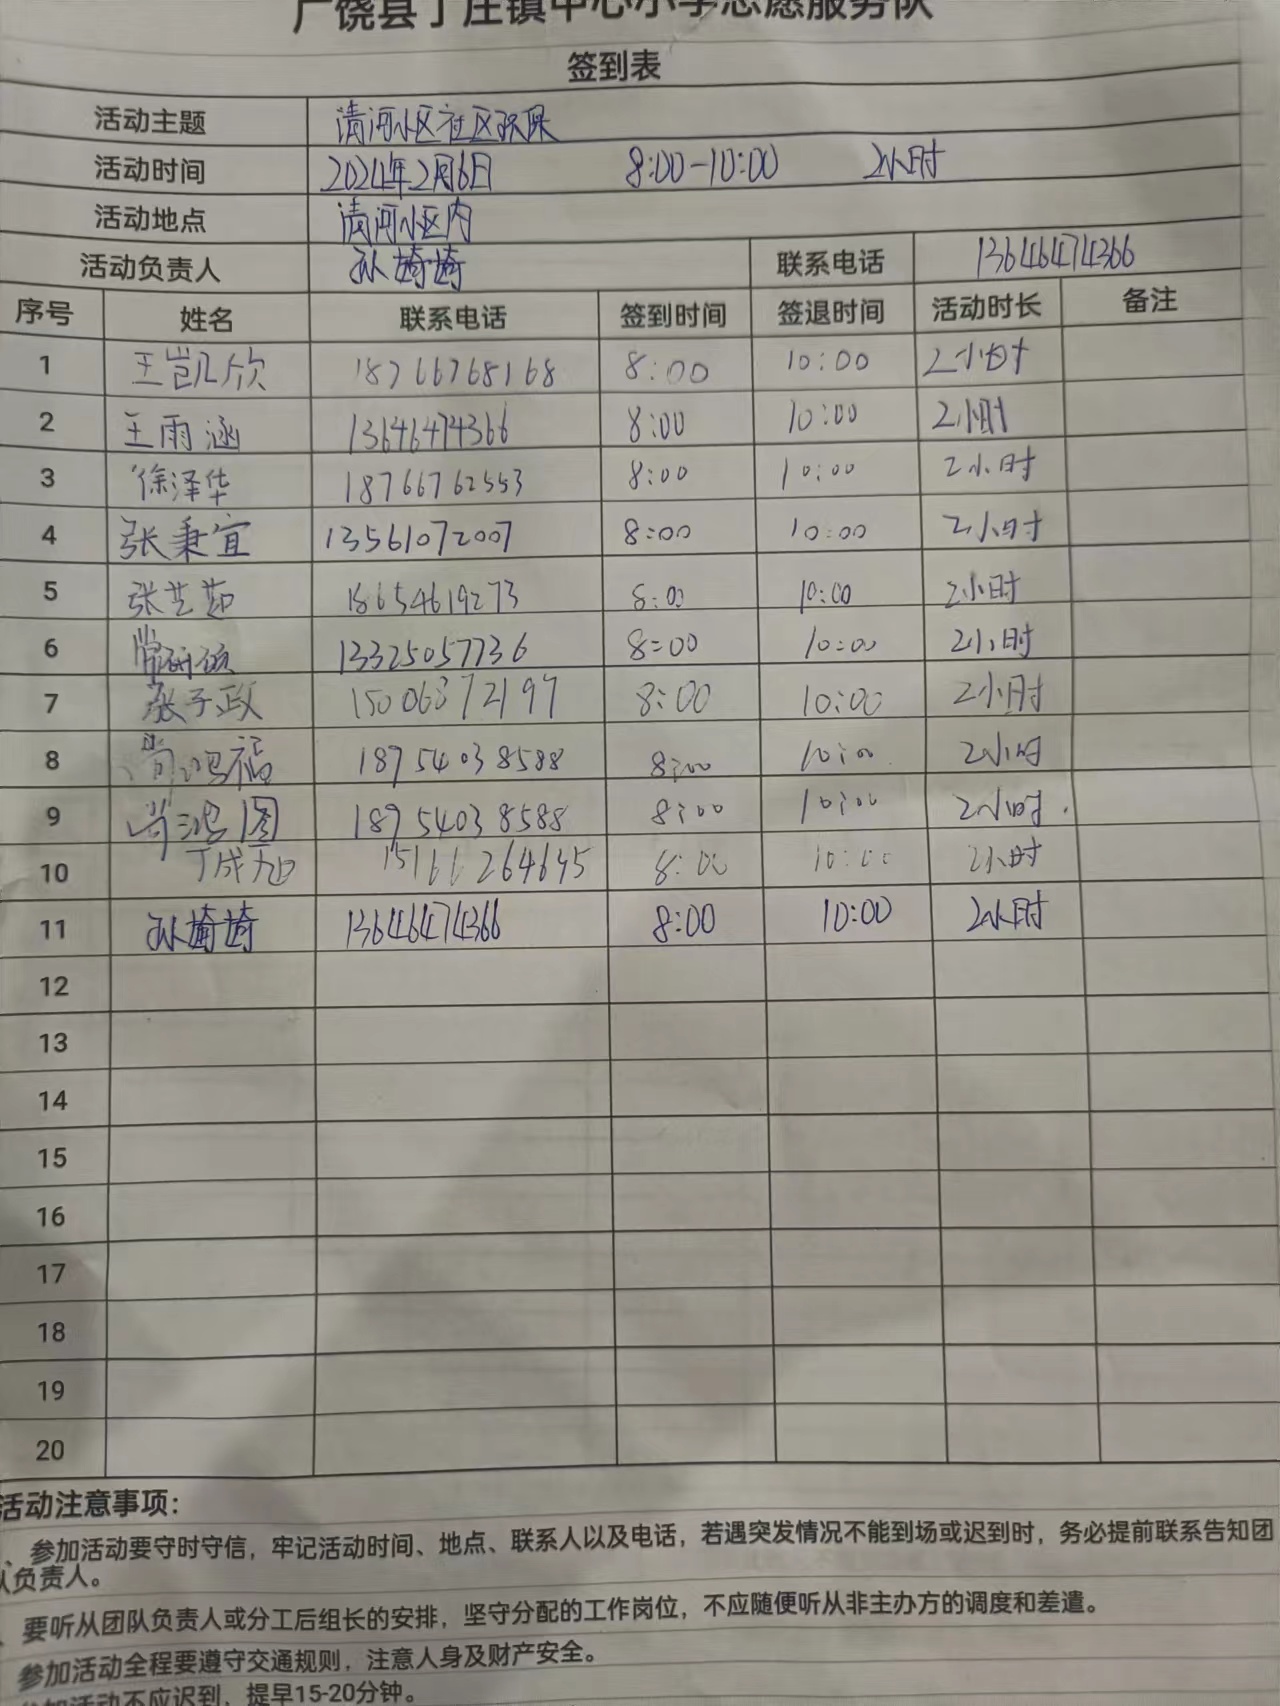 广饶县丁庄镇中心小学志愿服务队
签到表
活动主题 清河小区社区环保
活动时间 2024年2月6日 8:00-10:00 2小时
活动地点 清河小区内
活动负责人 孙婍婍 联系电话 13646474366
序号 姓名 联系电话 签到时间 签退时间 活动时长 备注
1 王凯欣 18766768168 8:00 10:00 2小时
2 王雨涵 13646474366 8:00 10:00 2小时
3 徐泽华 18766762553 8:00 10:00 2小时
4 张秉宜 13561072007 8:00 10:00 2小时
5 张艺茹 18654619273 8:00 10:00 2小时
6 13325057736 8:00 10:00 2小时
7 张子政 15006872197 8:00 10:00 2小时
8 尚鸿福 18754038588 8:00 10:00 2小时
9 尚鸿图 18754038588 8:00 10:00 2小时.
10 丁成旭 15166264645 8:00 10:00 2小时
11 孙婍婍 13646474366 8:00 10:00 2小时
12
13
14
15
16
17
18
19
20
活动注意事项：
、参加活动要守时守信，牢记活动时间、地点、联系人以及电话，若遇突发情况不能到场或迟到时，务必提前联系告知团
队负责人。
、要听从团队负责人或分工后组长的安排，坚守分配的工作岗位，不应随便听从非主办方的调度和差遣。
参加活动全程要遵守交通规则，注意人身及财产安全。
参加活动不应迟到，提早15-20分钟。